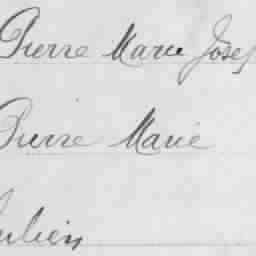 Pierre Marie Josep
Pierre Marie
Julien